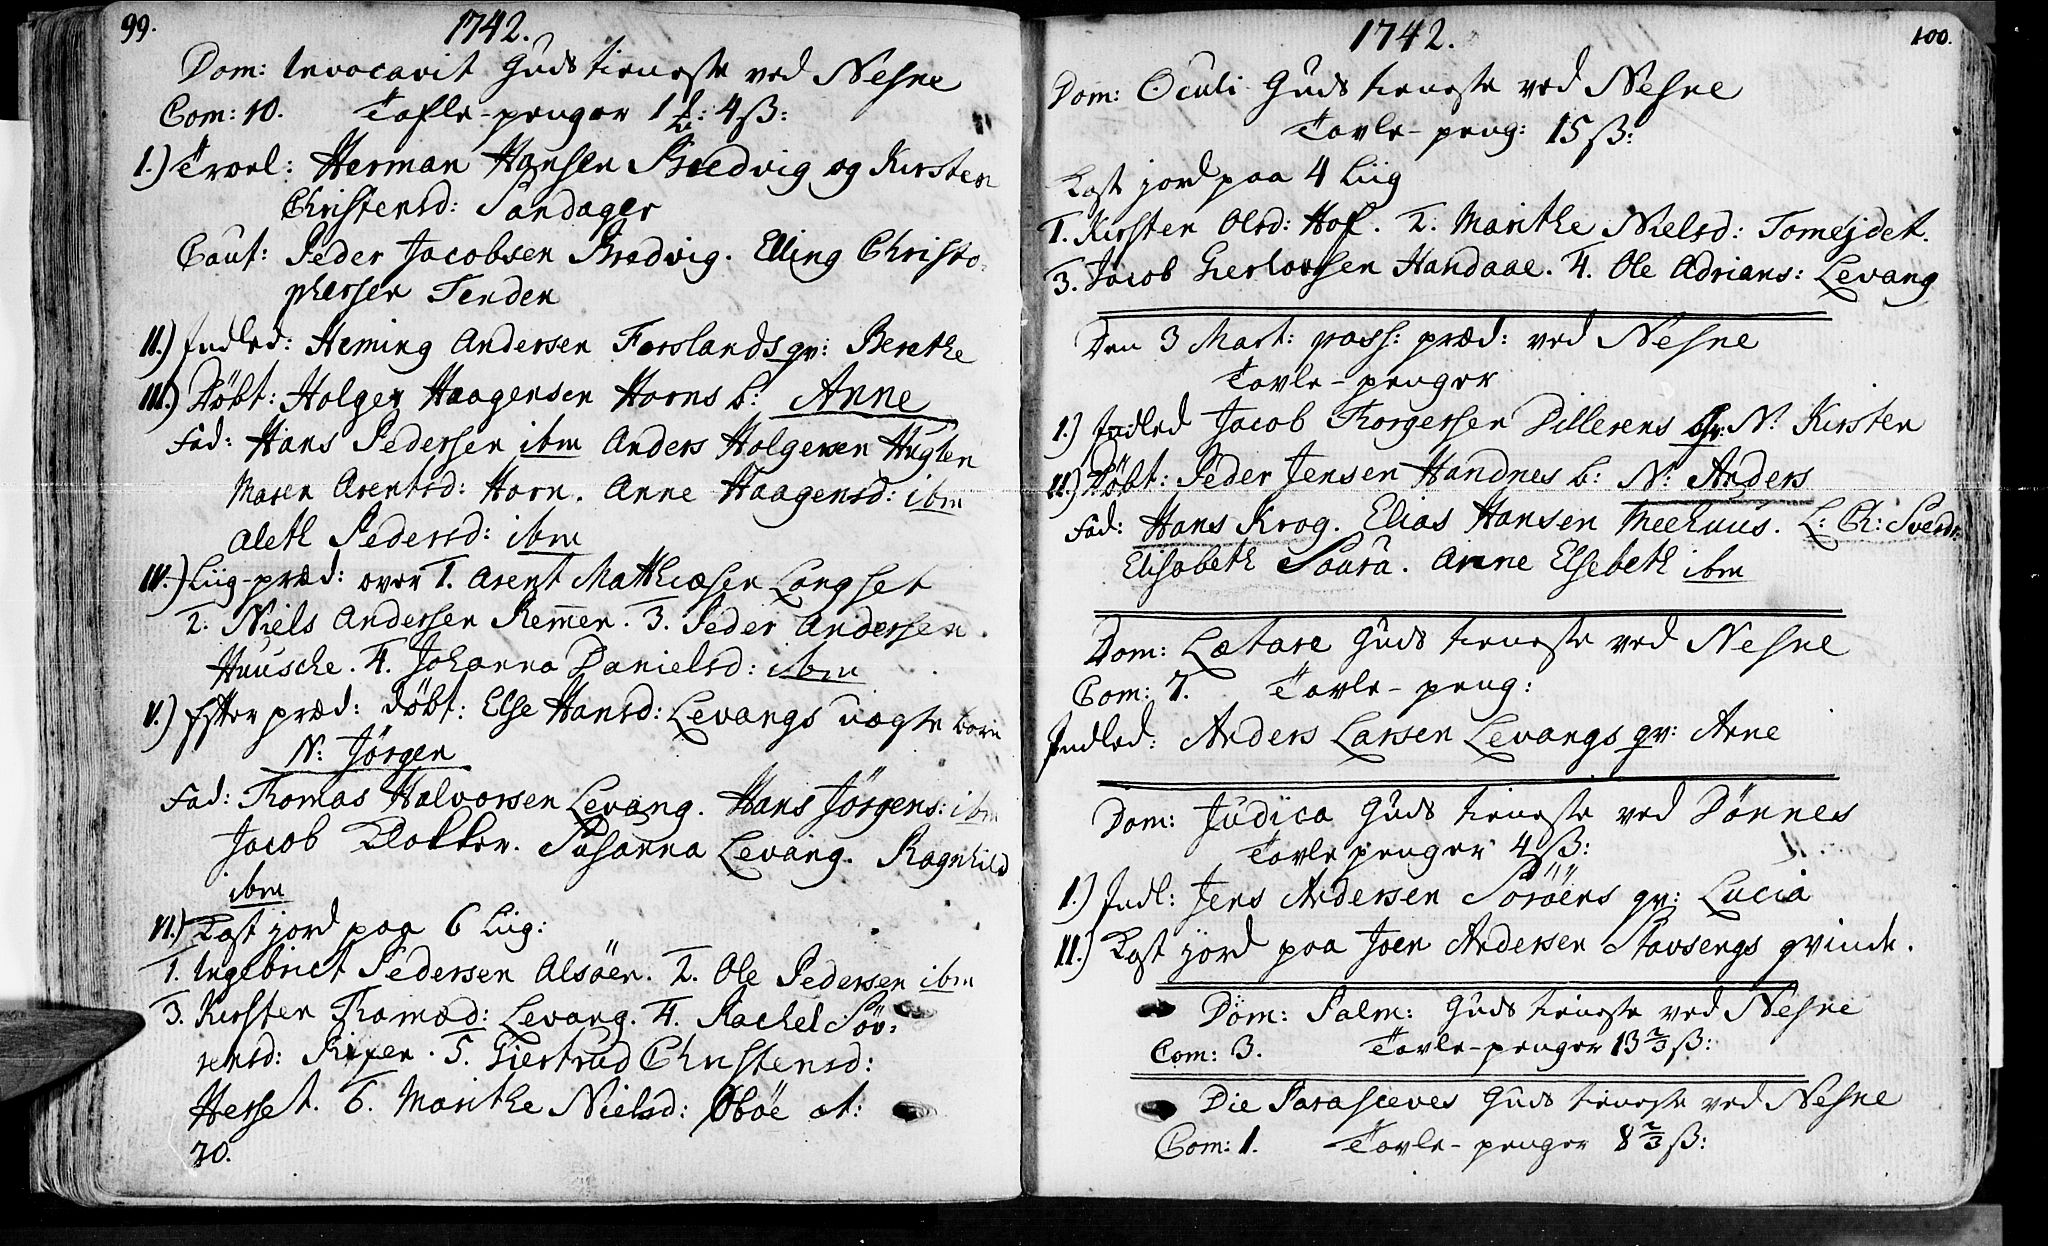 99.
1742.
Dom: Invocavit Guds tieneste ved Nesne
Com: 10. Tafle-penger 1 : 4 ß:
I.) Troel: Herman Hansen Bredvig og Kirsten
Christensd: Sandager
Caut: Peder Jacobsen Bredvig. Elling Christo-
phersen Tenden
II.) Indled: Heming Andersen Forslands qv: Berethe
III.) Döbt: Holger Haagensen Horns b: Anne
Fad: Hans Pedersen ibm Anders Holgersen Huglen
Maren Arentsd: Horn. Anne Haagensd: ibm
Aleth Pedersd: ibm
IV.) Liig-præd: over 1. Arent Matthiæsen Langset
2. Niels Andersen Remen. 3. Peder Andersen
Huusche. 4. Johanna Danielsd: ibm
V.) Efter præd: döbt: Else Hansd: Levangs uægte barn
N: Jörgen
Fad: Thomas Halvorsen Levang. Hans Jörgens: ibm
Jacob Klokker. Susanna Levang. Ragnhild
ibm
VI.) Kast jord paa 6 Liig:
1. Ingebrict Pedersen Alsöen. 2. Ole Pedersen ibm
3. Kirsten Thomæd: Levang. 4. Rachel Sör-
rensd: . 5. Giertrud Christensd:
Herset. 6. Marithe Nielsd: Oböe æt:
70.
1742.
100.
Dom: Oculi Guds tieneste ved Nesne
Tavle-peng: 15 ß:
Kast jord paa 4 Liig
1. Kirsten Olsd: Hof. 2. Marithe Nielsd: Tomejdet.
3. Jacob Gerlovsen Handaae. 4. Ole Adrians: Levang
Den 3 Mart: pass: præd: ved Nesne
Tavle-penger
I.) Indled Jacob Thorgersen Dillerens qv: N: Kirsten
II.) Döbt: Peder Jensen Handnes b: N: Anders
Fad: Hans Krog. Elias Hansen Meehuus. L: Ch: Sverdr:
Elisabeth Saura. Anne Elsebeth ibm
Dom: Lætare Guds tieneste ved Nesne
Com: 7. Tavle-peng:
Indled: Anders Larsen Levangs qv: Ane
Dom: Judica Guds tieneste ved Dönnes
Tavle penger 4 ß:
I.) Indl: Jens Andersen Söröens qv: Lucia
II.) Kast jord paa Joen Andersen Stavsengs qvinde.
Dom: Palm: Guds tieneste ved Nesne
Com: 3. Tavle-penger 13 2/3 ß:
Die Parasceves Guds tieneste ved Nesne
Com: 1. Tavle-penger 8 2/3 ß: